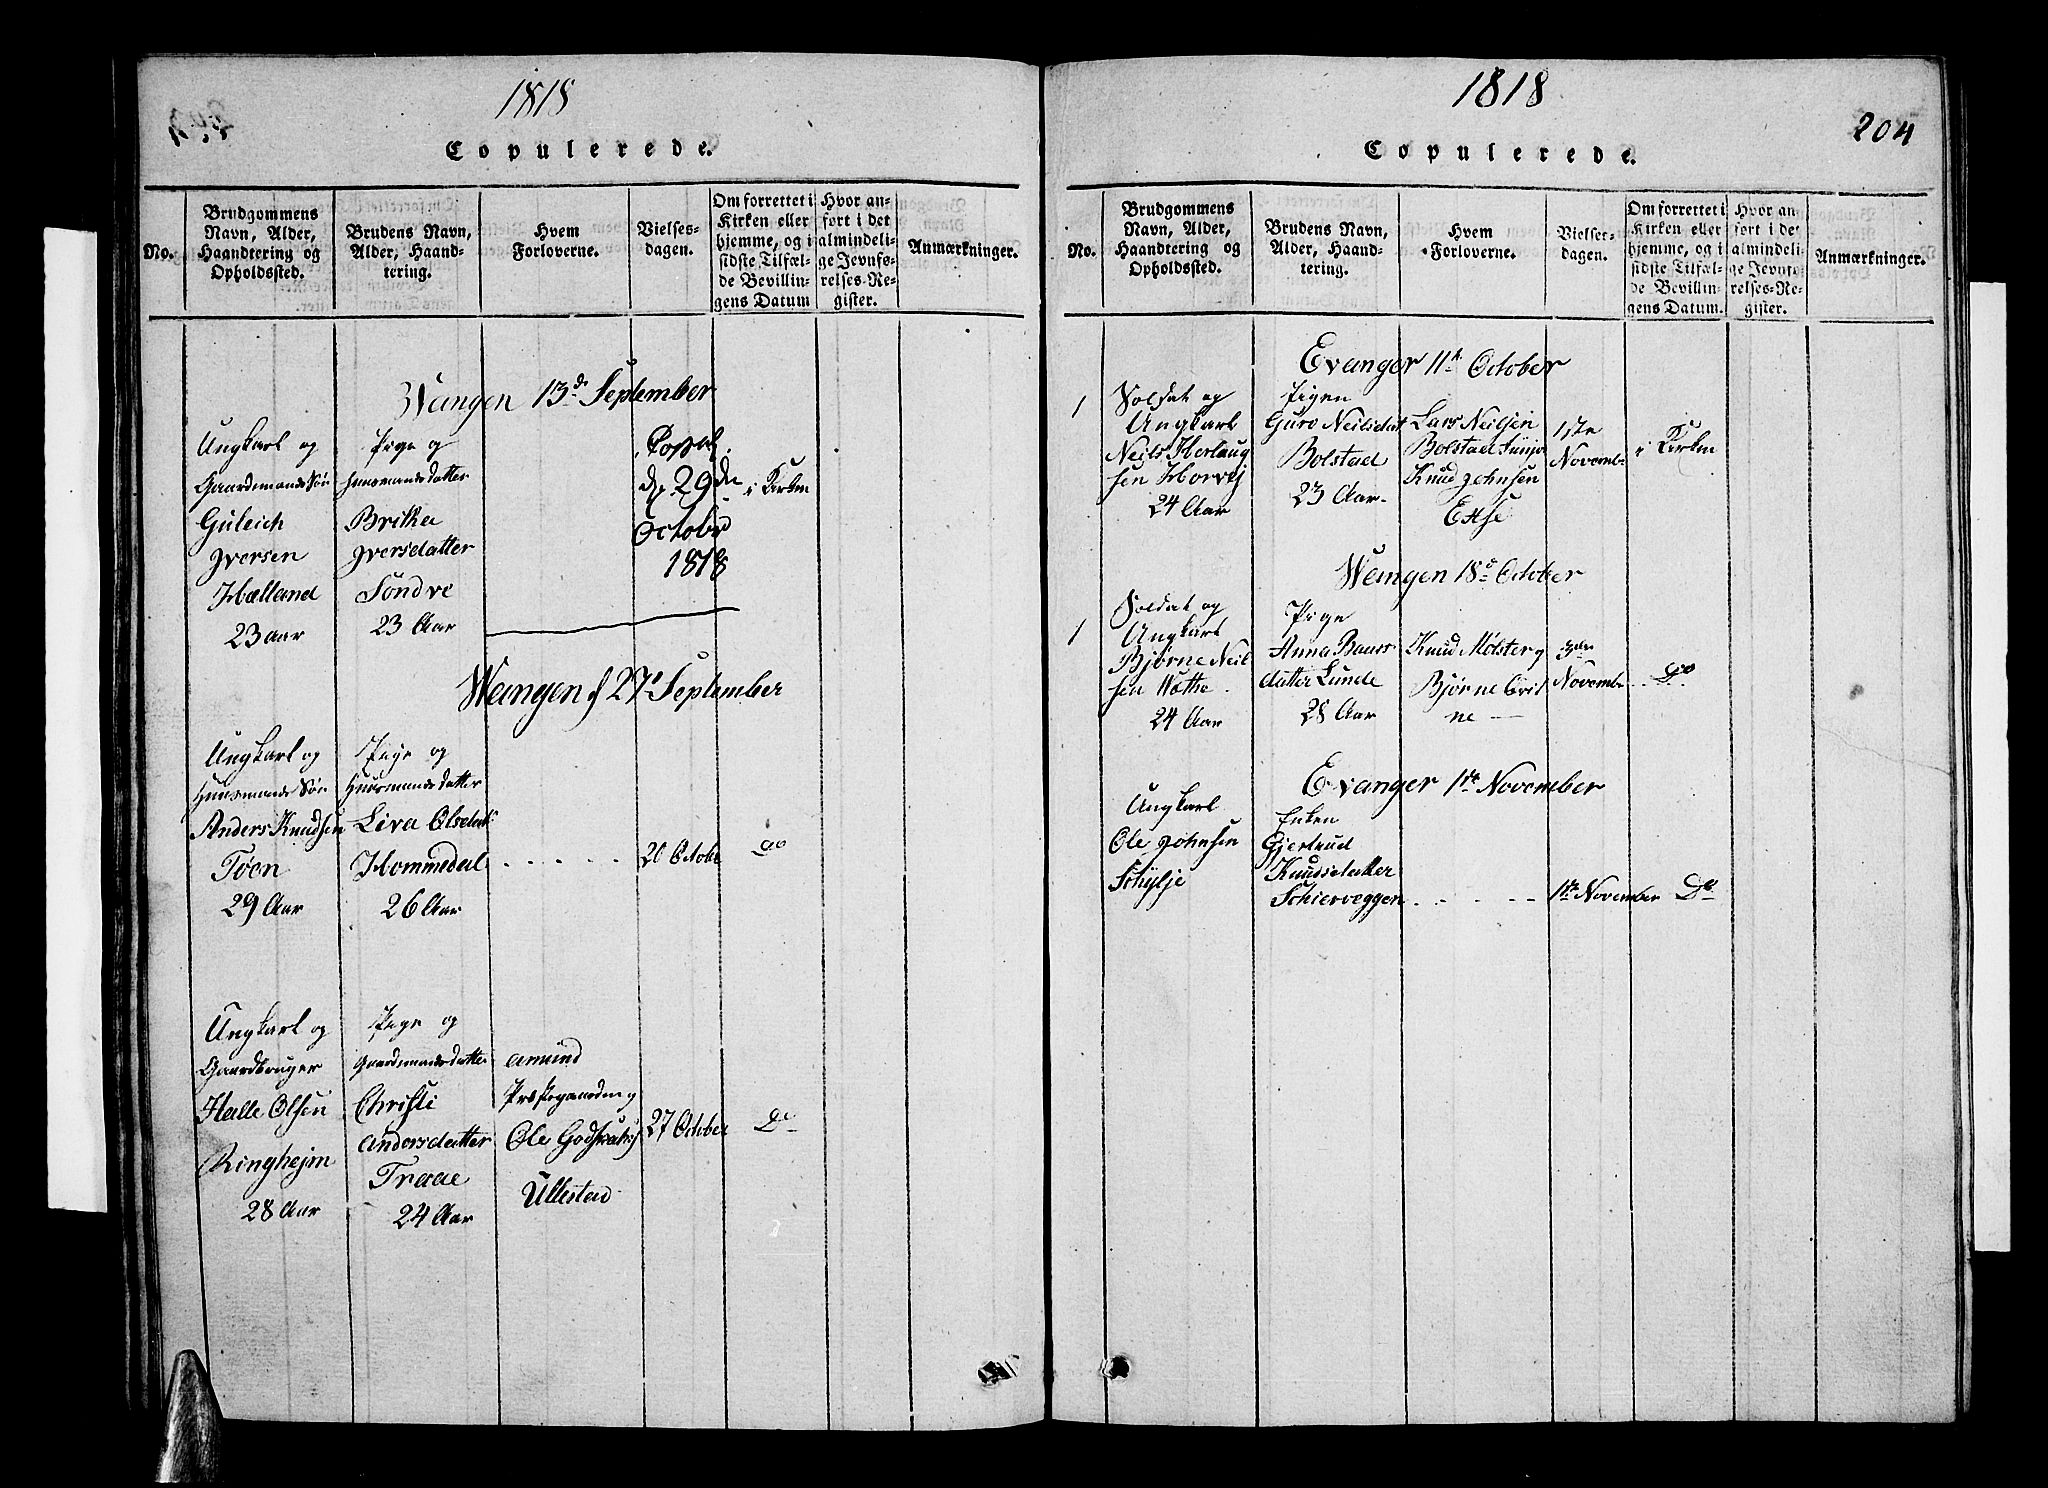 1818
Copulerede.
No.
Brudgommens
Navn, Alder,
Haandtering og
Opholdssted.
Brudens Navn,
Alder, Haand-
tering.
Hvem
Forloverne.
Vielses-
dagen.
Om forrettet i
Kirken eller
hjemme, og i
sidste Tilfæl-
de Bevillin-
gens Datum
Hvor an-
ført i det
almindeli-
ge Jevnfø-
relses-Re-
gister.
Anmærkninger.
Wangen 13de September
Ungkarl og
Gaardmands Søn
Guleich
Iversen
Hælland
23 aar
Pige og
Huusmands datter
Britha
Iversdatter
Sondve
23 Aar
Copul.
d. 29de
Octobr
1818
i Kirken
Wangen d 27 September
Ungkarl og
Huusmands Søn
Anders Knudsen
Toon
29 Aar
Pige og
Huusmands datter
Liva Olsdatt
Hommedal
26 Aar
20 Octobr
do
Ungkarl og
Gaardbruger
Halle Olsen
Ringhejm
28 Aar
Pige og
Gaardmands datter
Christi
Andersdatter
Træae
24 Aar
Amund
Præstegaarden og
Ole Godskalks
Ullestad
27 October
Do
1818
204
Copulerede.
No.
Brudgommens
Navn, Alder,
Haandtering og
Opholdssted.
Brudens Navn,
Alder, Haand-
tering.
Hvem
Forloverne.
Vielses-
dagen.
Om forrettet i
Kirken eller
hjemme, og i
sidste Tilfæl-
de Bevillin-
gens Datum.
Hvor an-
ført i det
almindeli-
ge Jevnfø-
relses-Re-
gister.
Anmærkninger.
Evanger 11te October
1
Soldat og
Ungkarl
Neils Herlaug
sen Horvej
24 Aar
Pigen
Guro Neilsdat
Bolstad
23 Aar
Lars Neilsen
Bolstad
Knud Johnsen
Exse
1ste
Novembr
i Kirken
Wangen 18de October
1
Soldat og
Ungkarl
Bjørne Neil
sen Wæthe
24 Aar
Pige
Anna Baars
datter Lunde
28 Aar
Knud Mølster og
Bjørne Gril
ne
3die
Novembr
do
Evanger 1ste November
Ungkarl
Ole Johnsen
Schylje
Enken
Gjertrud
Knudsdatter
Schierveggen
1ste November
Do